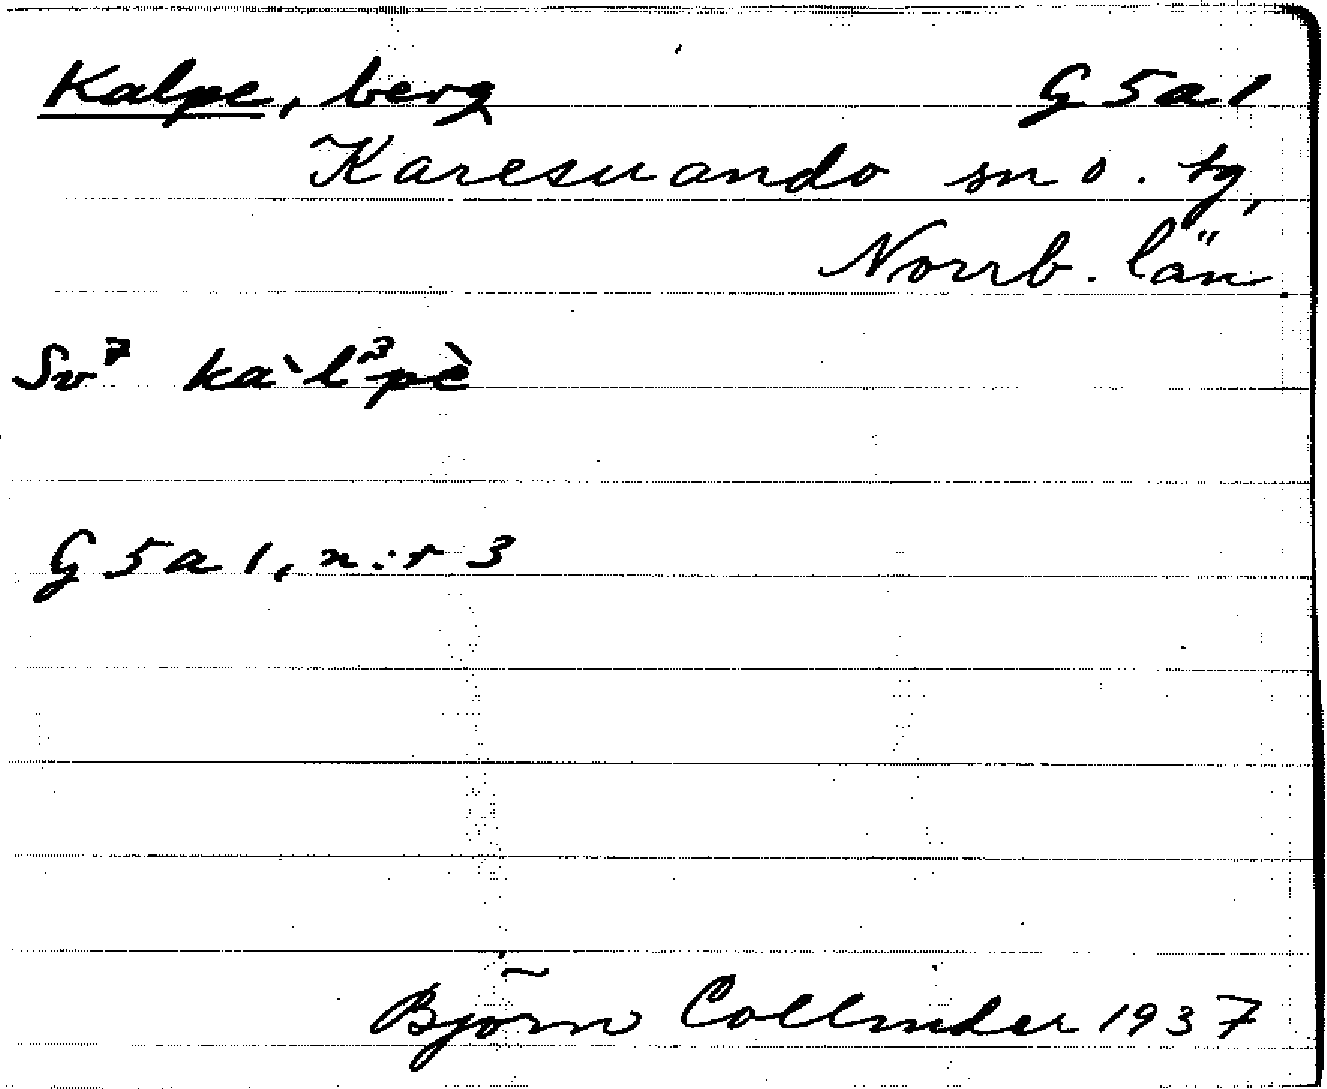 Kalpe, berg G5a1
Karesuando sn o. tg,
Norrb. län
Sv⁷ ka`l³pè
G5a1, n:r 3
Björn Collinder 1937